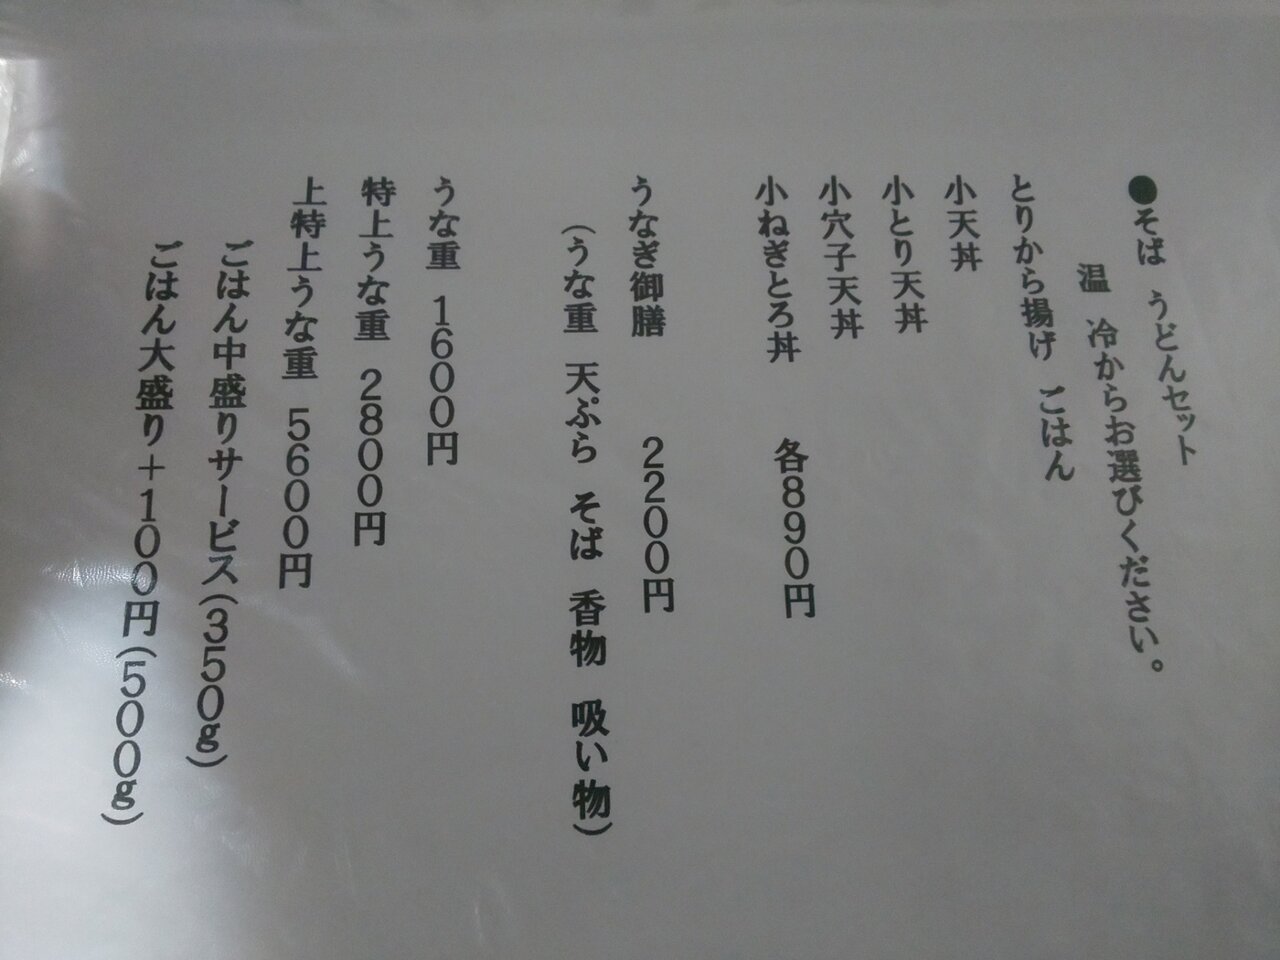 ●そば うどんセット
温 冷からお選びください。
とりから揚げ ごはん
小天丼
小とり天丼
小穴子天丼
小ねぎとろ丼 各890円
うなぎ御膳 2200円
（うな重 天ぷら そば 香物 吸い物）
うな重 1600円
特上うな重 2800円
上特上うな重 5600円
ごはん中盛りサービス（350g）
ごはん大盛り＋100円（500g）